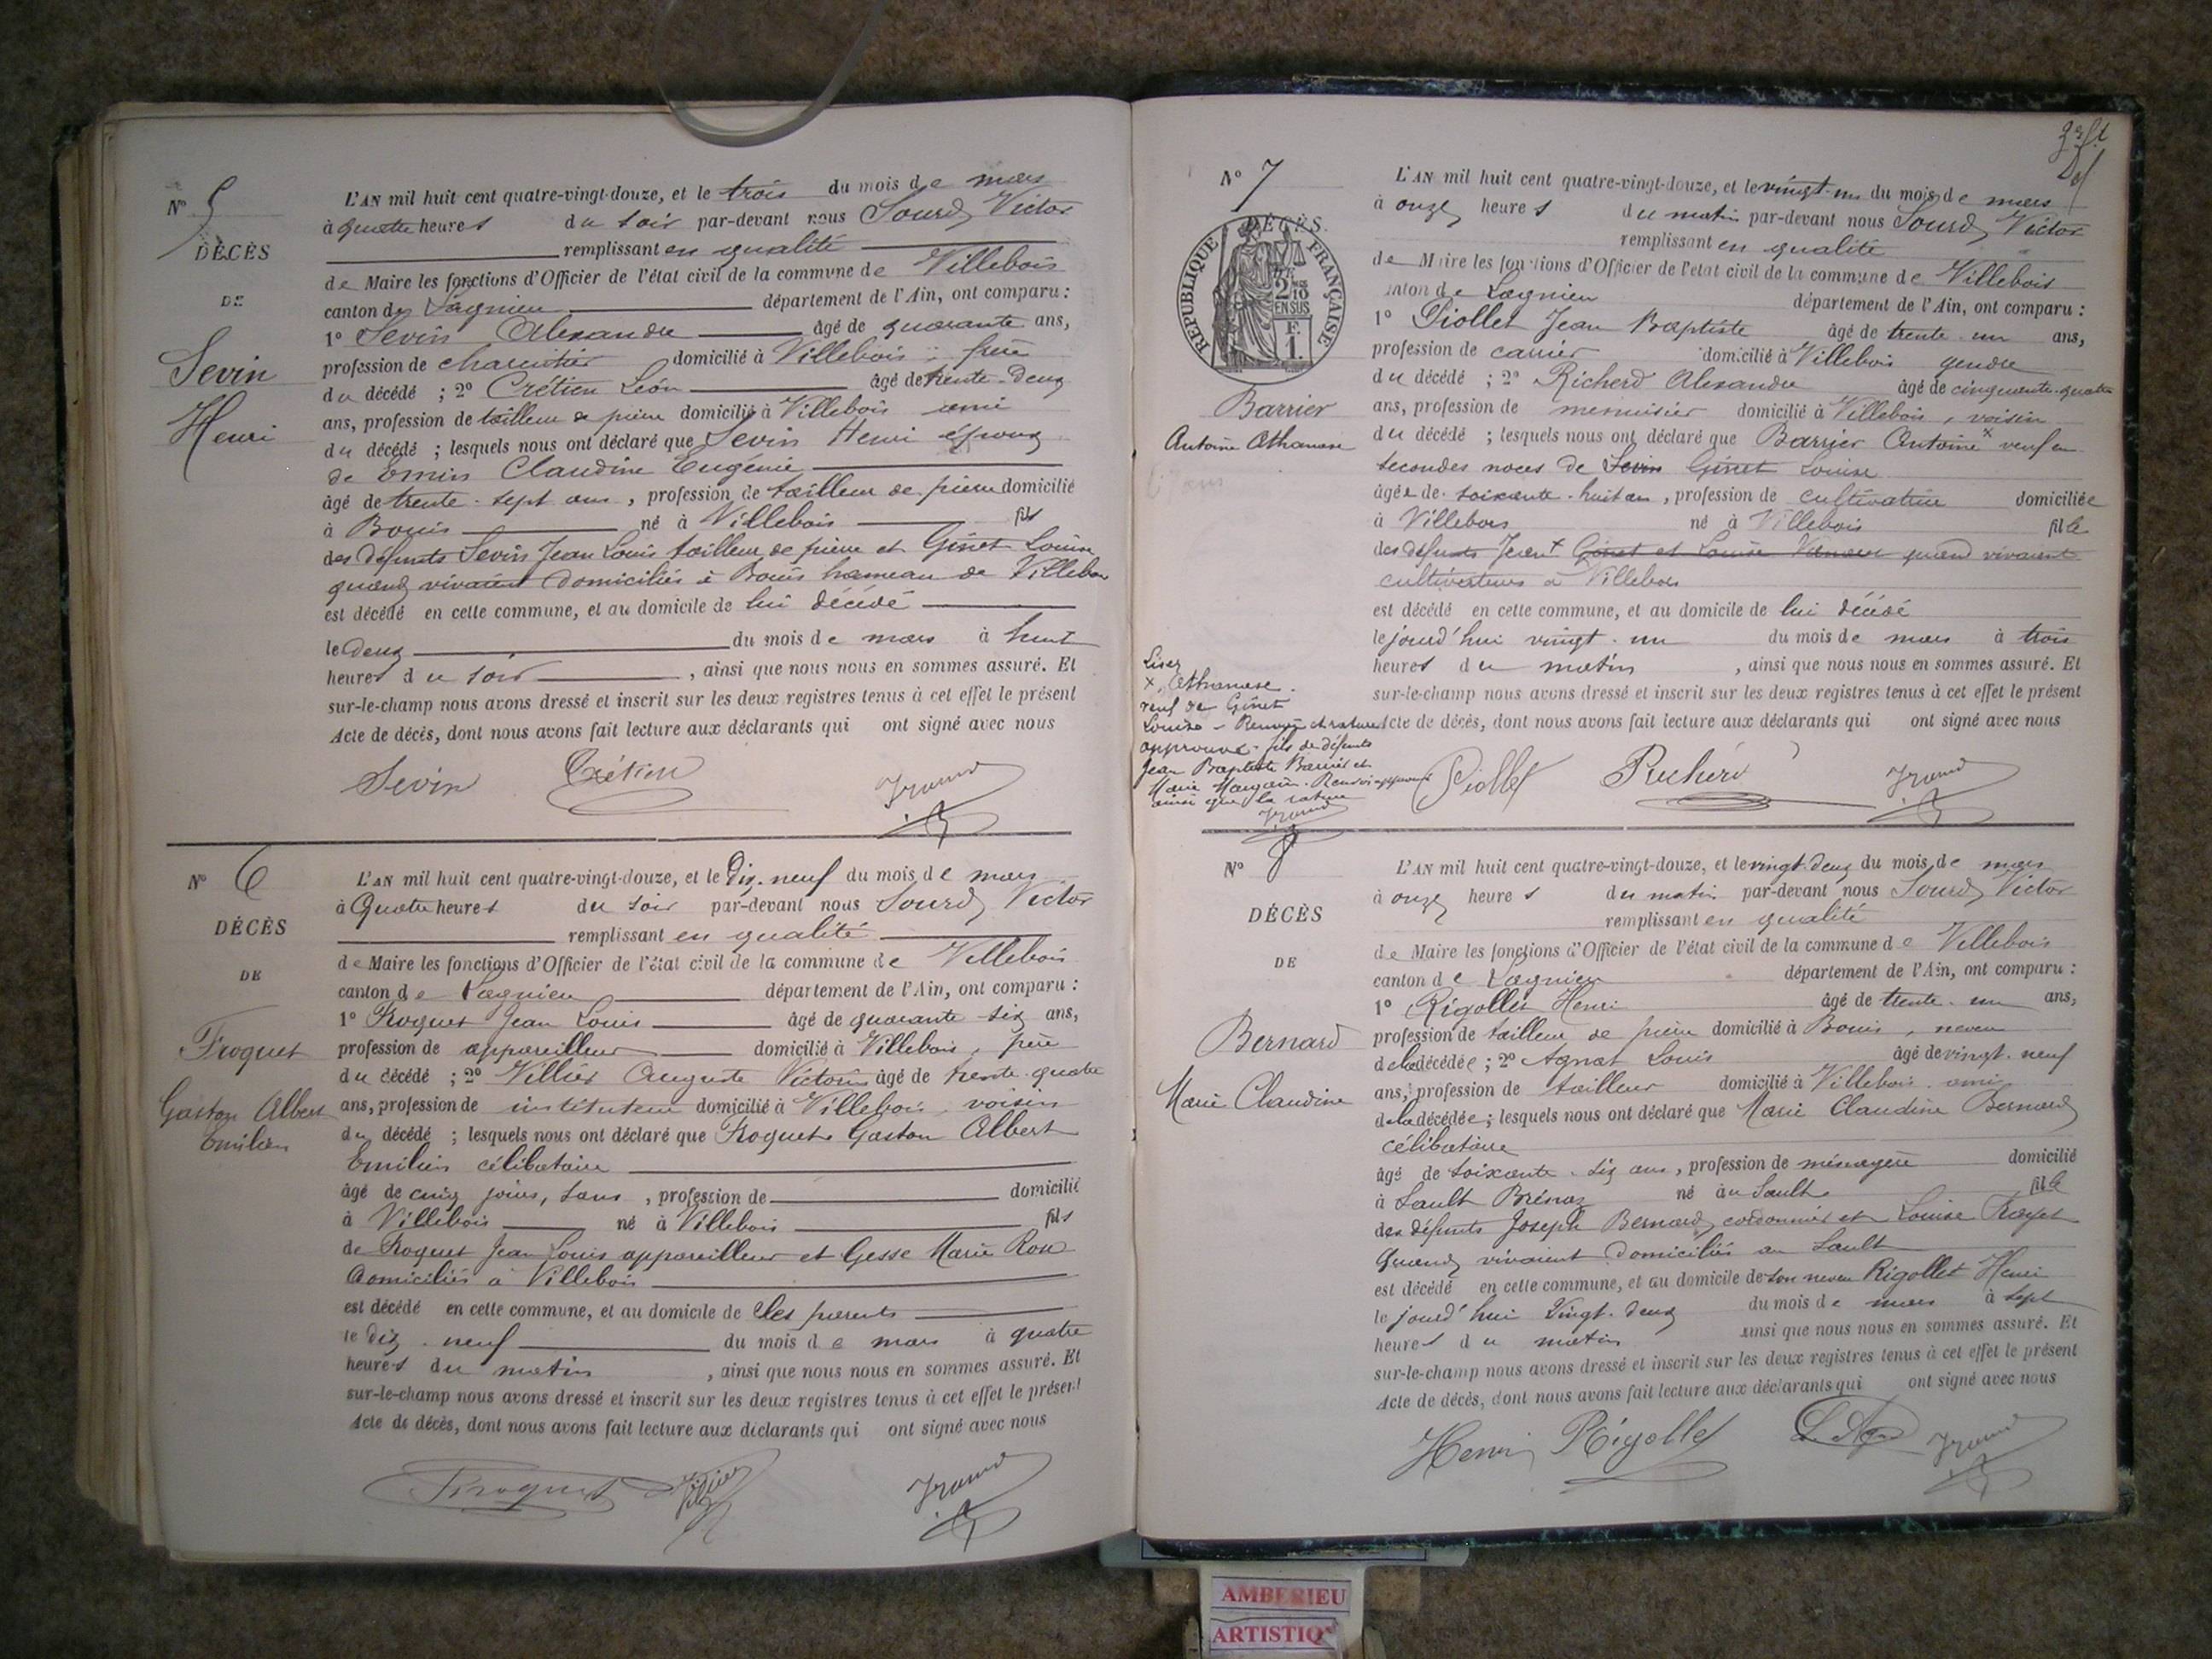 N° 5
DÉCÈS
DE
Sevin
Henri
L'AN mil huit cent quatre-vingt-douze, et le trois du mois de mars
à quatre heures du soir par-devant nous Sourd Victor
remplissant en qualité
de Maire les fonctions d'Officier de l'état civil de la commune de Villebois
canton de Lagnieu département de l'Ain, ont comparu :
1° Sevin Alexandre âgé de quarante ans,
profession de charcutier domicilié à Villebois frère
du décédé ; 2° Crétien Léon âgé de trente-deux
ans, profession de tailleur de pierre domicilié à Villebois ami
du décédé ; lesquels nous ont déclaré que Sevin Henri époux
de Emin Claudine Eugénie
âgé de trente-sept ans, profession de tailleur de pierre domicilié
à Bouis né à Villebois fils
des défunts Sevin Jean Louis tailleur de pierre et Ginet Louise
quand vivaient domiciliés à Bouis hameau de Villebois
est décédé en cette commune, et au domicile de lui décédé
le deux du mois de mars à huit
heures du soir, ainsi que nous nous en sommes assuré. Et
sur-le-champ nous avons dressé et inscrit sur les deux registres tenus à cet effet le présent
Acte de décès, dont nous avons fait lecture aux déclarants qui ont signé avec nous
Sevin Crétien
N° 6
DÉCÈS
DE
Froquet
Gaston Albert
Emilien
L'AN mil huit cent quatre-vingt-douze, et le Dix-neuf du mois de mars
à Quatre heures du soir par-devant nous Sourd Victor
remplissant en qualité
de Maire les fonctions d'Officier de l'état civil de la commune de Villebois
canton de Lagnieu département de l'Ain, ont comparu :
1° Froquet Jean Louis âgé de quarante-six ans,
profession de appareilleur domicilié à Villebois, père
du décédé ; 2° Villier Auguste Victorin âgé de trente-quatre
ans, profession de instituteur domicilié à Villebois, voisin
du décédé ; lesquels nous ont déclaré que Froquet Gaston Albert
Emilien célibataire
âgé de cinq jours, sans, profession de domicilié
à Villebois né à Villebois fils
de Froquet Jean Louis appareilleur et Gesse Marie Rose
domiciliés à Villebois
est décédé en cette commune, et au domicile de ses parents
le dix-neuf du mois de mars à quatre
heures du matin, ainsi que nous nous en sommes assuré. Et
sur-le-champ nous avons dressé et inscrit sur les deux registres tenus à cet effet le présent
Acte de décès, dont nous avons fait lecture aux déclarants qui ont signé avec nous
Froquet Villier
N° 7
DÉCÈS.
REPUBLIQUE FRANÇAISE
2/10 EN SUS
F. 1.
Barrier
Antoine Athanase
L'AN mil huit cent quatre-vingt-douze, et le vingt-un du mois de mars
à onze heures du matin par-devant nous Sourd Victor
remplissant en qualité
de Maire les fonctions d'Officier de l'état civil de la commune de Villebois
canton de Lagnieu département de l'Ain, ont comparu :
1° Piollet Jean Baptiste âgé de trente-un ans,
profession de carrier domicilié à Villebois gendre
du décédé ; 2° Richerd Alexandre âgé de cinquante-quatre
ans, profession de menuisier domicilié à Villebois, voisin
du décédé ; lesquels nous ont déclaré que Barrier Antoine x veuf en
secondes noces de Sevin Ginet Louise
âgée de soixante-huit ans, profession de cultivatrice domiciliée
à Villebois né à Villebois fille
des défunts Jean x Ginet et Louise quand vivaient
cultivateurs à Villebois
est décédé en cette commune, et au domicile de lui décédé
le jourd'hui vingt-un du mois de mars à trois
heures du matin, ainsi que nous nous en sommes assuré. Et
sur-le-champ nous avons dressé et inscrit sur les deux registres tenus à cet effet le présent
Acte de décès, dont nous avons fait lecture aux déclarants qui ont signé avec nous
Lisez
x, Athanase.
veuf de Ginet
Louise - Renvoi et rature
approuvé. fils de défunts
Jean Baptiste Barrier et
Marie Renvoi approuvé
ainsi que la rature
Piollet Richerd
N° 8
DÉCÈS
DE
Bernard
Marie Claudine
L'AN mil huit cent quatre-vingt-douze, et le vingt-deux du mois de mars
à onze heures du matin par-devant nous Sourd Victor
remplissant en qualité
de Maire les fonctions d'Officier de l'état civil de la commune de Villebois
canton de Lagnieu département de l'Ain, ont comparu :
1° Rigollet Henri âgé de trente-un ans,
profession de tailleur de pierre domicilié à Bouis, neveu
de la décédée ; 2° Agnat Louis âgé de vingt-neuf
ans, profession de tailleur domicilié à Villebois ami
de la décédée ; lesquels nous ont déclaré que Marie Claudine Bernard
célibataire
âgé de soixante-six ans, profession de ménagère domicilié
à Sault Brénaz né au Sault fille
des défunts Joseph Bernard cordonnier et Louise
Quand vivaient domiciliés au Sault
est décédé en cette commune, et au domicile de son neveu Rigollet Henri
le jourd'hui vingt-deux du mois de mars à sept
heures du matin ainsi que nous nous en sommes assuré. Et
sur-le-champ nous avons dressé et inscrit sur les deux registres tenus à cet effet le présent
Acte de décès, dont nous avons fait lecture aux déclarants qui ont signé avec nous
Henri Rigollet
AMBERIEU
ARTISTIQ